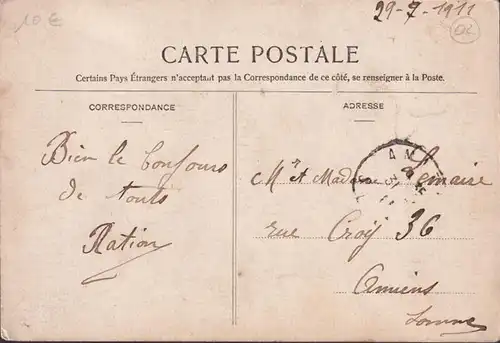 10 €
29-7-1911
CARTE POSTALE
Certains Pays Étrangers n'acceptant pas la Correspondance de ce côté, se renseigner à la Poste.
CORRESPONDANCE
Bien le bonjour
de touts
ADRESSE
AM
Mr et Madame Lemaire
rue Croÿ 36
Amiens
Somme